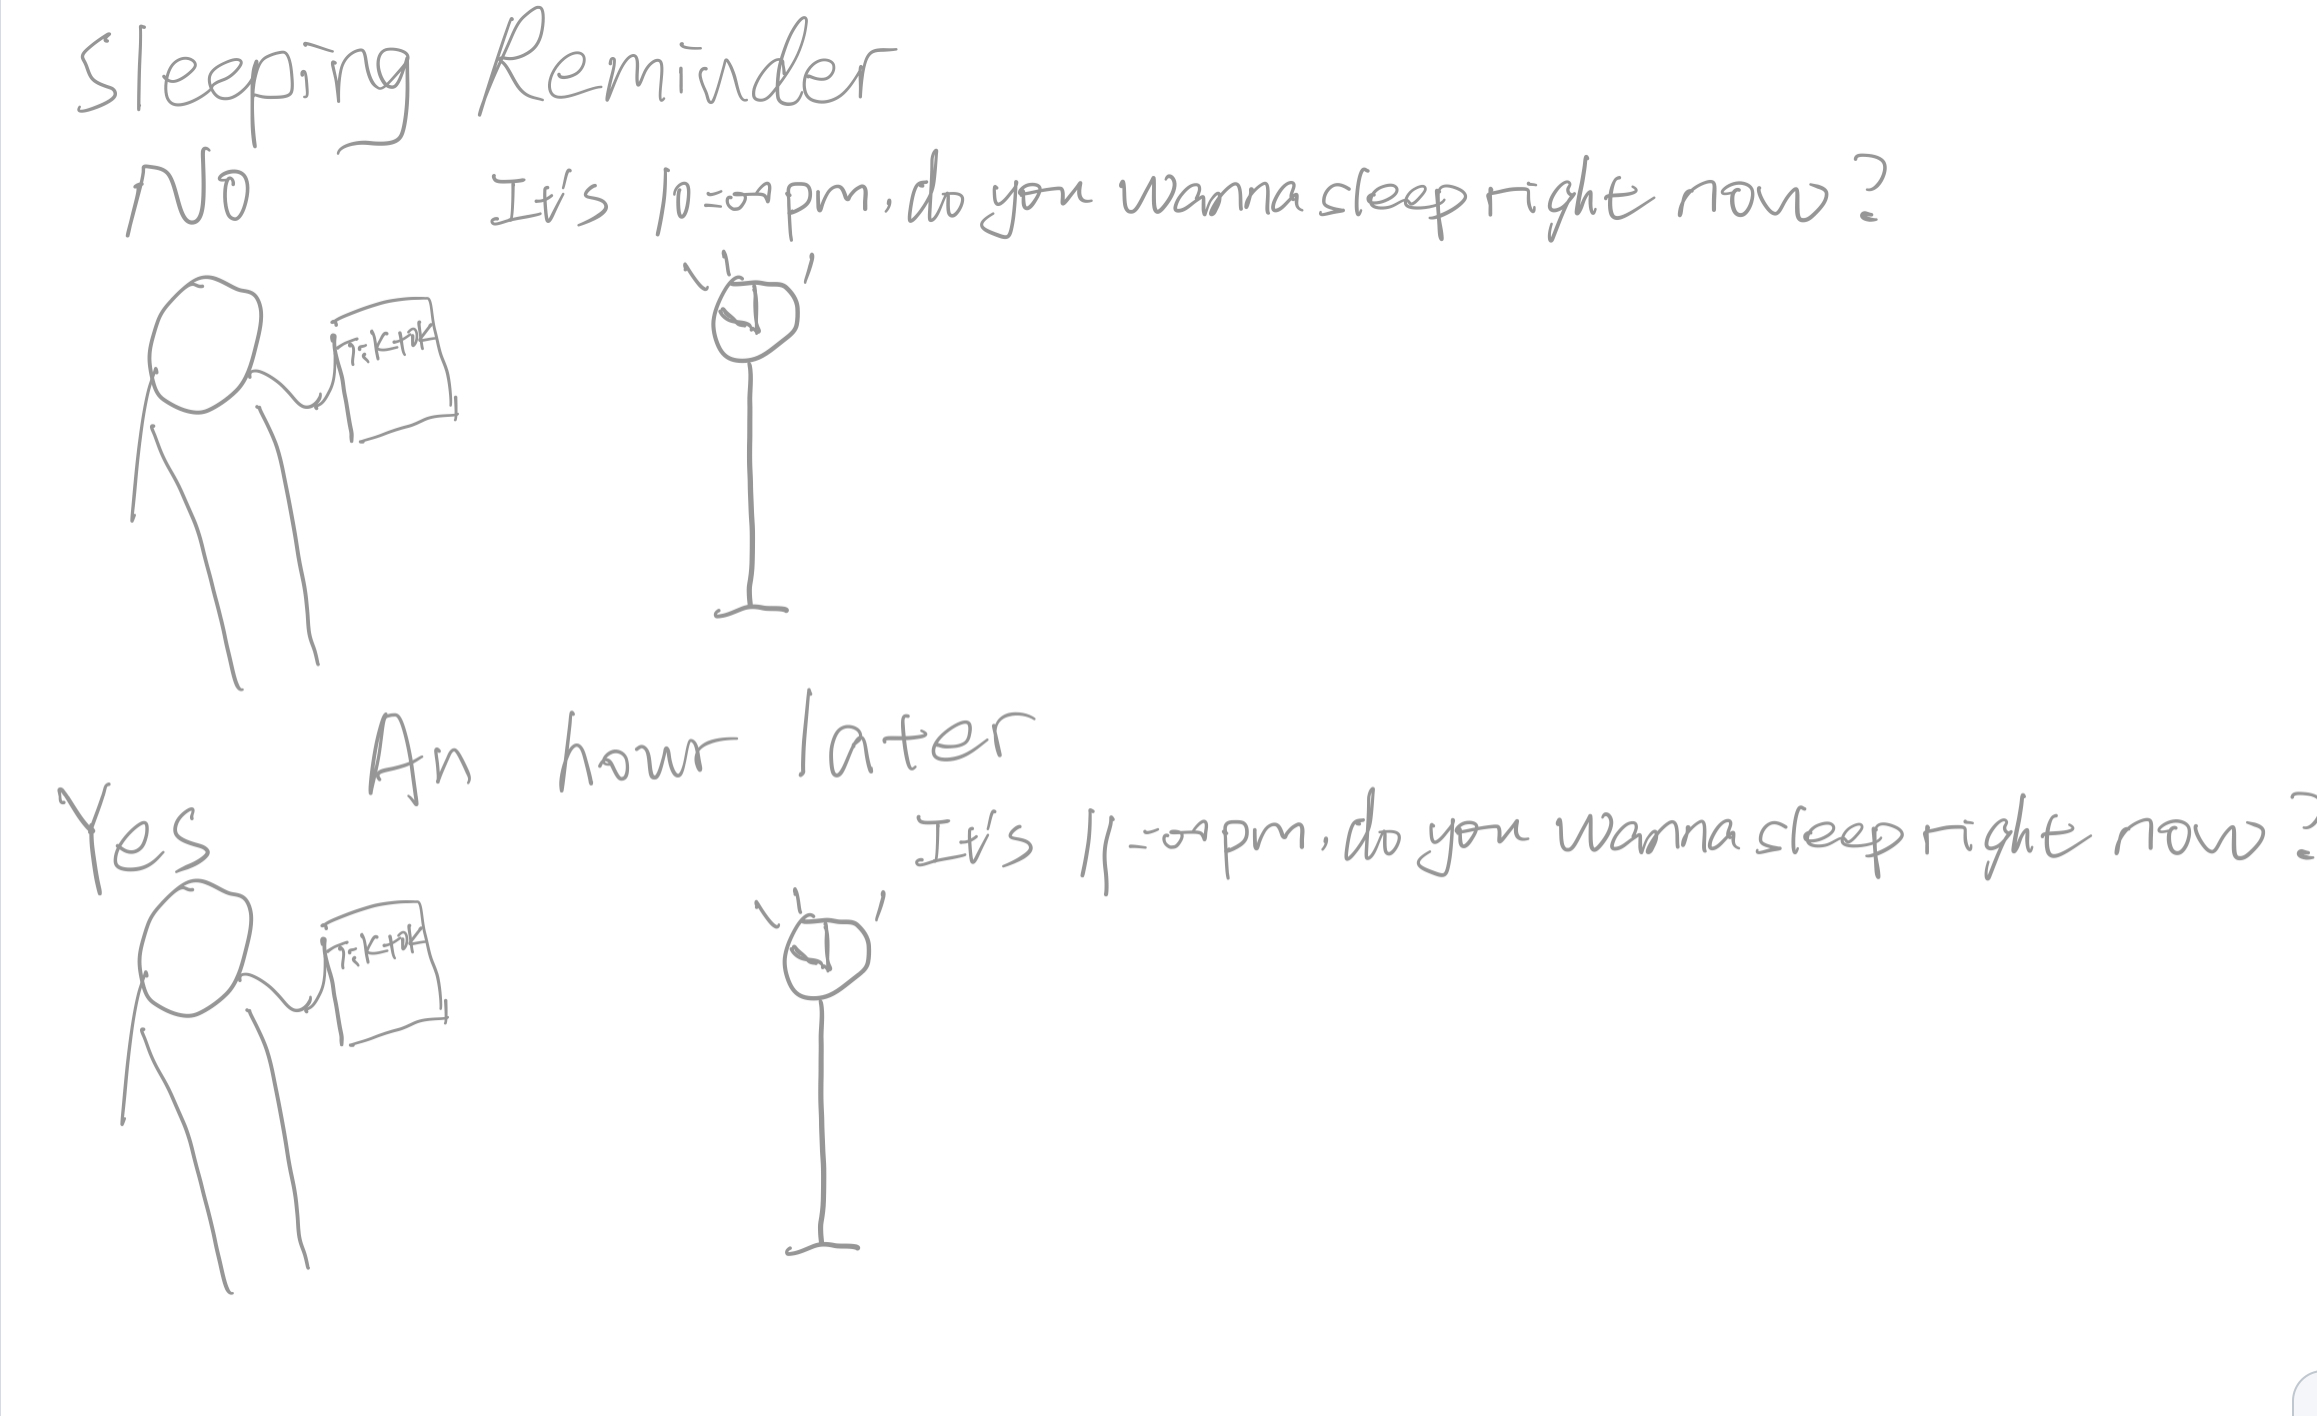 Sleeping Reminder
No
It's 10:00pm, do you wanna sleep right now?
Tiktok
An hour later
Yes
It's 11:00pm, do you wanna sleep right now?
Tiktok